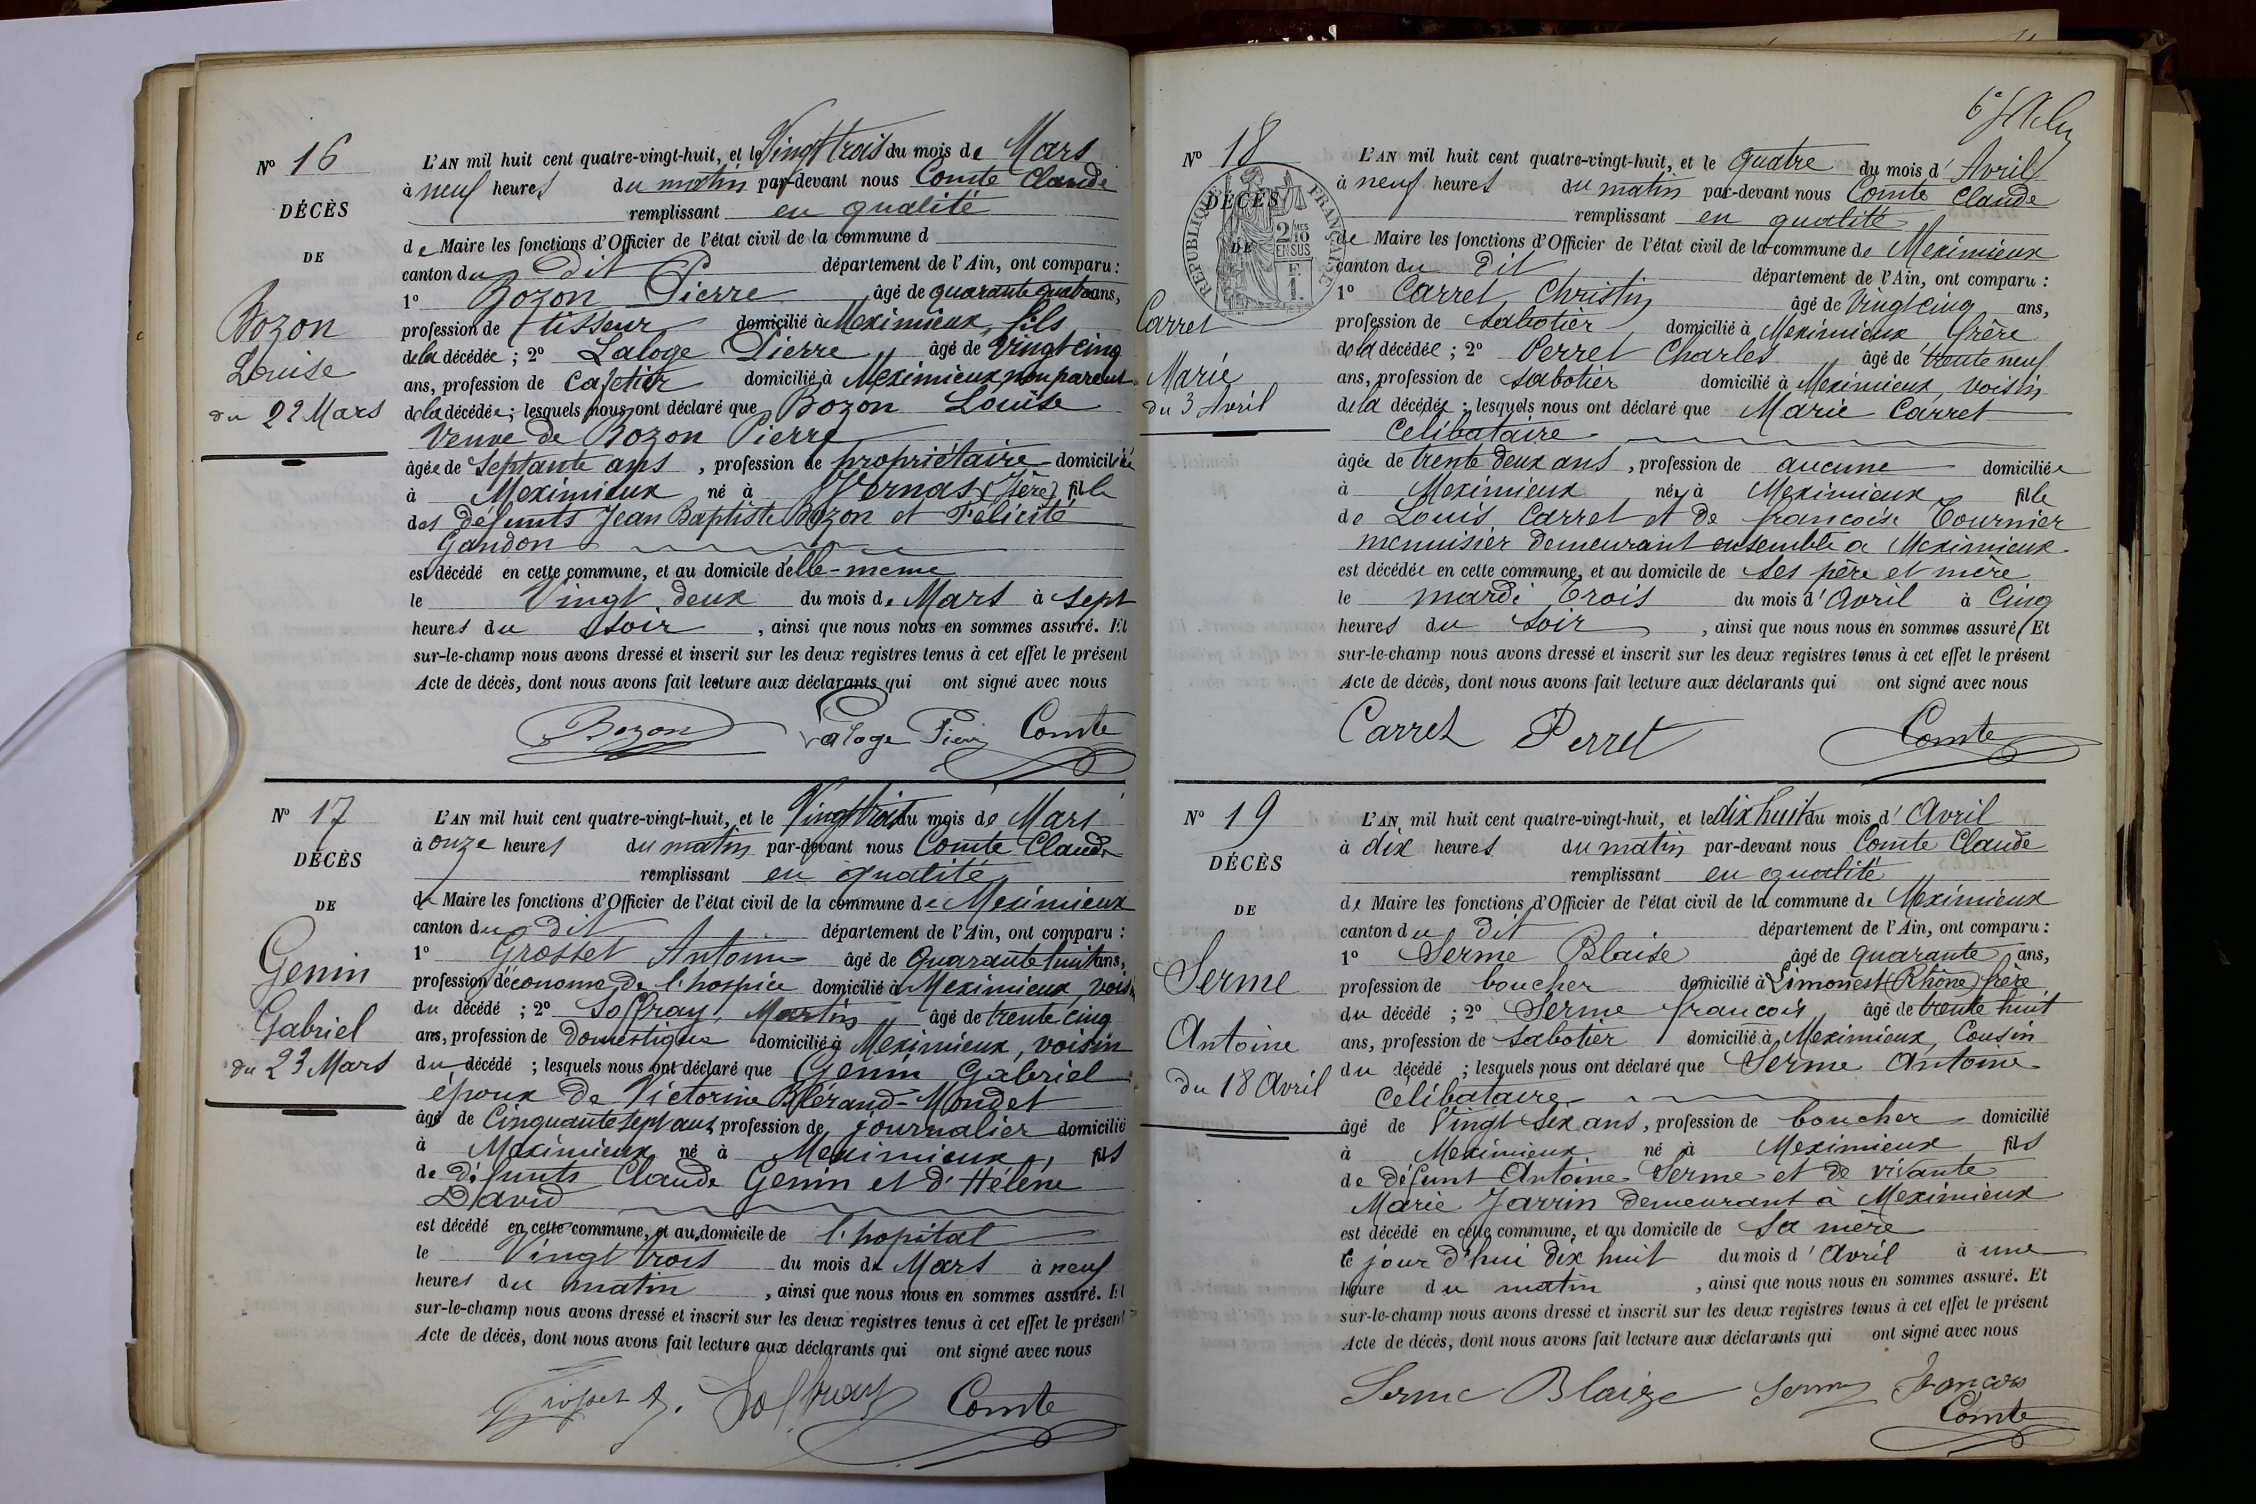 N° 16
DÉCÈS
DE
Bozon
Louise
du 22 Mars
L'AN mil huit cent quatre-vingt-huit, et le Vingt trois du mois de Mars
à neuf heures du matin par-devant nous Comte Claude
remplissant en qualité
de Maire les fonctions d'Officier de l'état civil de la commune d
canton du dit département de l'Ain, ont comparu :
1° Bozon Pierre âgé de quarante quatre ans,
profession de tisseur domicilié à Meximieux, fils
de la décédée ; 2° Laloge Pierre âgé de vingt cinq
ans, profession de cafetier domicilié à Meximieux, non parent
de la décédée ; lesquels nous ont déclaré que Bozon Louise
Veuve de Bozon Pierre
âgée de septante ans, profession de propriétaire domiciliée
à Meximieux né à Vernas (Isère) fille
des défunts Jean Baptiste Bozon et Félicité
Gandon
est décédé en cette commune, et au domicile d'elle-même
le Vingt deux du mois de Mars à sept
heures du soir, ainsi que nous nous en sommes assuré. Et
sur-le-champ nous avons dressé et inscrit sur les deux registres tenus à cet effet le présent
Acte de décès, dont nous avons fait lecture aux déclarants qui ont signé avec nous
Bozon Laloge Pierre Comte
N° 17
DÉCÈS
DE
Genin
Gabriel
du 23 Mars
L'AN mil huit cent quatre-vingt-huit, et le Vingt trois du mois de Mars
à onze heures du matin par-devant nous Comte Claude
remplissant en qualité
de Maire les fonctions d'Officier de l'état civil de la commune de Meximieux
canton du dit département de l'Ain, ont comparu :
1° Grosset Antoine âgé de Quarante huit ans,
profession d'économe de l'hospice domicilié à Meximieux, voisin
du décédé ; 2° Soffray Martin âgé de trente cinq
ans, profession de Domestique domicilié à Meximieux, voisin
du décédé ; lesquels nous ont déclaré que Genin Gabriel
époux de Victorine Blérand-Mondet
âgé de Cinquante sept ans, profession de journalier domicilié
à Meximieux né à Meximieux, fils
de défunts Claude Genin et d'Hélène
David
est décédé en cette commune, et au domicile de l'hopital
le Vingt trois du mois de Mars à neuf
heures du matin, ainsi que nous nous en sommes assuré. Et
sur-le-champ nous avons dressé et inscrit sur les deux registres tenus à cet effet le présent
Acte de décès, dont nous avons fait lecture aux déclarants qui ont signé avec nous
Grosset A. Soffray Comte
N° 18
DÉCÈS
DE
RÉPUBLIQUE FRANÇAISE
2/10 MES
EN SUS
F.
1.
Carret
Marie
du 3 Avril
L'AN mil huit cent quatre-vingt-huit, et le quatre du mois d'Avril
à neuf heures du matin par-devant nous Comte Claude
remplissant en qualité
de Maire les fonctions d'Officier de l'état civil de la commune de Meximieux
canton du dit département de l'Ain, ont comparu :
1° Carret Christin âgé de vingt cinq ans,
profession de sabotier domicilié à Meximieux frère
de la décédée ; 2° Perret Charles âgé de trente neuf
ans, profession de sabotier domicilié à Meximieux, voisin
de la décédée ; lesquels nous ont déclaré que Marie Carret
Célibataire
âgée de trente deux ans, profession de aucune domiciliée
à Meximieux née à Meximieux fille
de Louis Carret et de françoise Tournier
menuisier demeurant ensemble à Meximieux
est décédée en cette commune, et au domicile de ses père et mère
le mardi trois du mois d'Avril à Cinq
heures du soir, ainsi que nous nous en sommes assuré. Et
sur-le-champ nous avons dressé et inscrit sur les deux registres tenus à cet effet le présent
Acte de décès, dont nous avons fait lecture aux déclarants qui ont signé avec nous
Carret Perret Comte
N° 19
DÉCÈS
DE
Serme
Antoine
du 18 Avril
L'AN mil huit cent quatre-vingt-huit, et le dix huit du mois d'Avril
à dix heures du matin par-devant nous Comte Claude
remplissant en qualité
de Maire les fonctions d'Officier de l'état civil de la commune de Meximieux
canton du dit département de l'Ain, ont comparu :
1° Serme Blaise âgé de quarante ans,
profession de boucher domicilié à Limonest (Rhône) frère
du décédé ; 2° Serme françois âgé de trente huit
ans, profession de sabotier domicilié à Meximieux, Cousin
du décédé ; lesquels nous ont déclaré que Serme Antoine
Célibataire
âgé de Vingt six ans, profession de boucher domicilié
à Meximieux né à Meximieux fils
de défunt Antoine Serme et de vivante
Marie Jarrin demeurant à Meximieux
est décédé en cette commune, et au domicile de sa mère
le jour d'hui dix huit du mois d'Avril à une
heure du matin, ainsi que nous nous en sommes assuré. Et
sur-le-champ nous avons dressé et inscrit sur les deux registres tenus à cet effet le présent
Acte de décès, dont nous avons fait lecture aux déclarants qui ont signé avec nous
Serme Blaize Serme françois
Comte